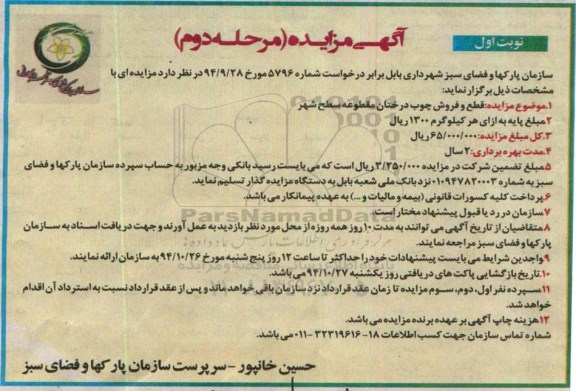 نوبت اول
آگهی مزایده (مرحله دوم)
سازمان پارکها و فضای سبز شهرداری بابل برابر درخواست شماره ۵۷۹۶ مورخ ۹۴/۹/۲۸ در نظر دارد مزایده ای با
مشخصات ذیل برگزار نماید:
۱.موضوع مزایده: قطع و فروش چوب درختان مقطوعه سطح شهر
۲.مبلغ پایه به ازای هر کیلوگرم ۱۳۰۰ ریال
۳.کل مبلغ مزایده: ۶۵/۰۰۰/۰۰۰ ریال
۴.مدت بهره برداری: ۲ سال
۵.مبلغ تضمین شرکت در مزایده ۳/۲۵۰/۰۰۰ ریال است که می بایست رسید بانکی وجه مزبور به حساب سپرده سازمان پارکها و فضای
سبز به شماره ۰۱۰۹۴۷۸۲۰۰۰۳ نزد بانک ملی شعبه بابل به دستگاه مزایده گذار تسلیم نماید.
۶.پرداخت کلیه کسورات قانونی (بیمه و مالیات و ...) به عهده پیمانکار می باشد.
۷.سازمان در رد یا قبول پیشنهاد مختار است
۸.متقاضیان از تاریخ آگهی می توانند به مدت ۱۰ روز همه روزه از محل مورد نظر بازدید به عمل آورند و جهت دریافت اسناد به سازمان
پارکها و فضای سبز مراجعه نمایند.
۹.واجدین شرایط می بایست پیشنهادات خود را حداکثر تا ساعت ۱۲ روز پنج شنبه مورخ ۹۴/۱۰/۲۶ به سازمان ارائه نمایند.
۱۰.تاریخ بازگشایی پاکت های دریافتی روز یکشنبه ۹۴/۱۰/۲۷ می باشد.
۱۱.سپرده نفر اول، دوم، سوم مزایده تا زمان عقد قرارداد نزد سازمان باقی خواهد ماند و پس از عقد قرارداد نسبت به استرداد آن اقدام
خواهد شد.
۱۲.هزینه چاپ آگهی بر عهده برنده مزایده می باشد.
شماره تماس سازمان جهت کسب اطلاعات ۱۸-۳۲۳۱۹۶۱۶-۰۱۱ می باشد.
حسین خانپور - سرپرست سازمان پارکها و فضای سبز
ParsNamadData